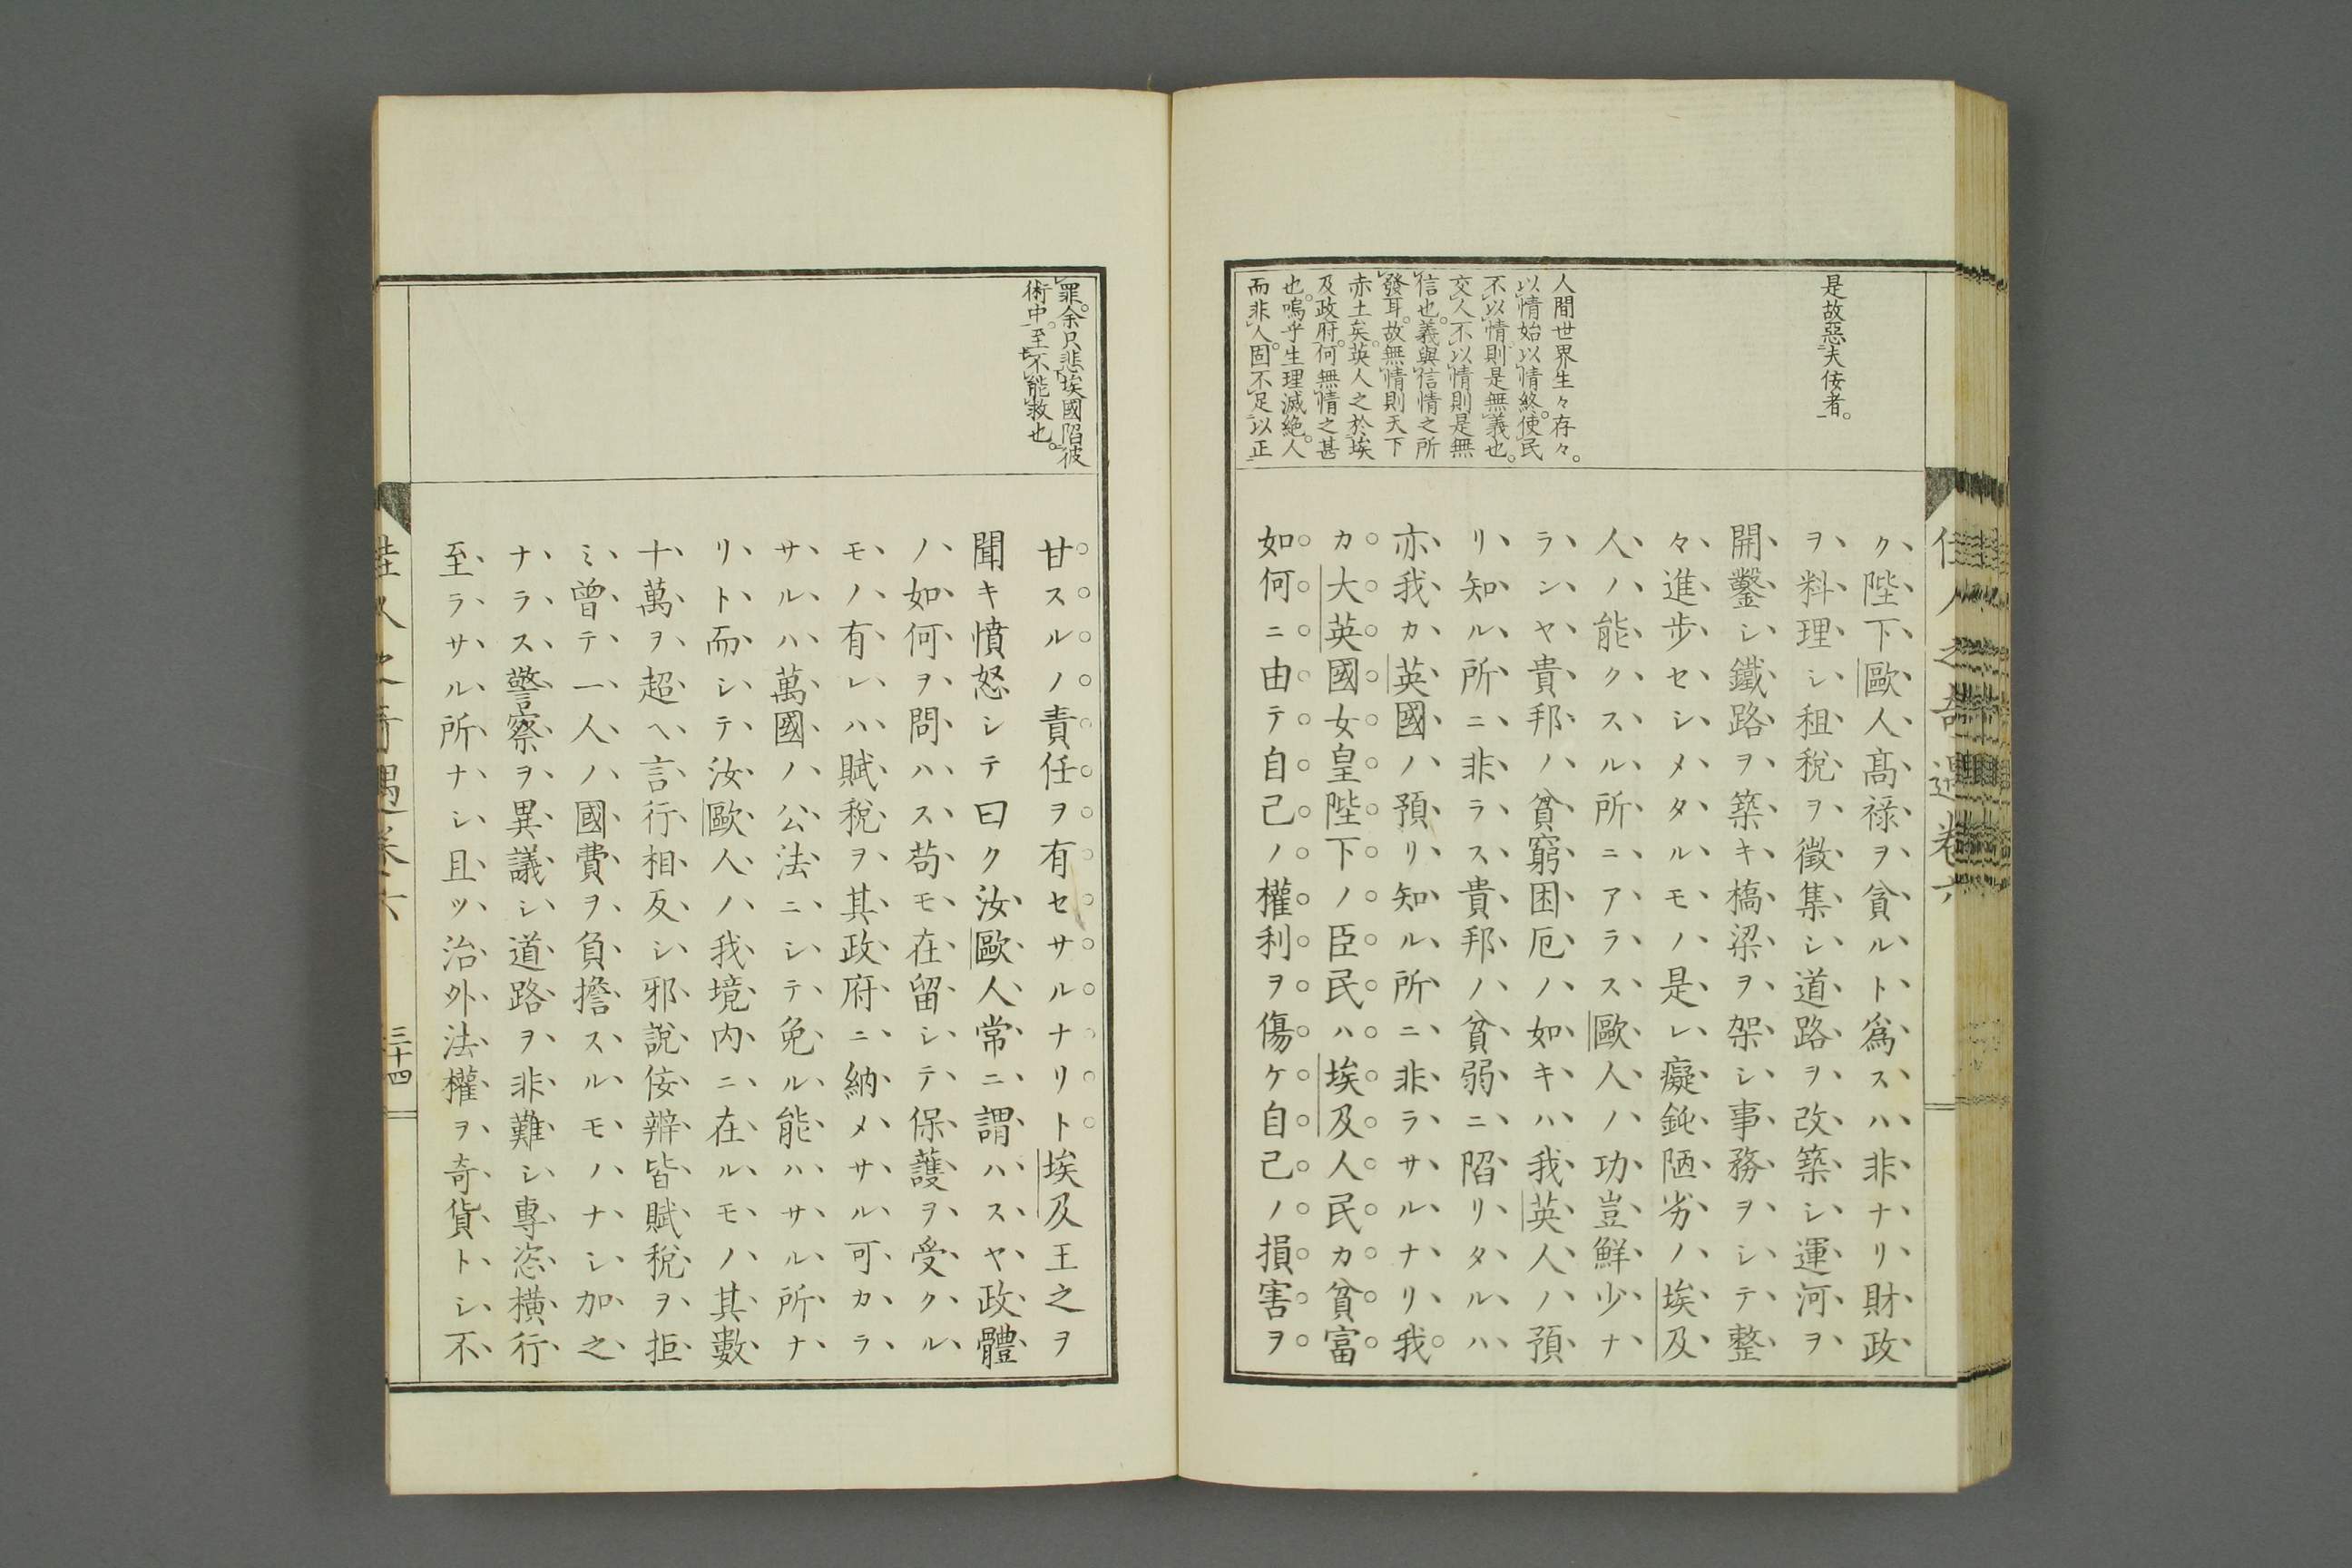 是故惡夫佞者。
人間世界生々存々。
以情始以情終。使民
不以情則是無義也。
交人不以情則是無
信也。義與信情之所
發耳。故無情則天下
赤土矣。英人之於埃
及政府。何無情之甚
也。嗚乎生理滅絶。人
而非人。固不足以正
ク陛下歐人高祿ヲ貪ルト爲スハ非ナリ財政
ヲ料理シ租稅ヲ徵集シ道路ヲ改築シ運河ヲ
開鑿シ鐵路ヲ築キ橋梁ヲ架シ事務ヲシテ整
々進步セシメタルモノ是レ癡鈍陋劣ノ埃及
人ノ能クスル所ニアラス歐人ノ功豈鮮少ナ
ランヤ貴邦ノ貧窮困厄ノ如キハ我英人ノ預
リ知ル所ニ非ラス貴邦ノ貧弱ニ陷リタルハ
亦我カ英國ノ預リ知ル所ニ非ラサルナリ我
カ大英國女皇陛下ノ臣民ハ埃及人民カ貧富
如何ニ由テ自己ノ權利ヲ傷ケ自己ノ損害ヲ
佳人之奇遇卷六
罪。余只悲埃國陷彼
術中。至不能救也。
甘スルノ責任ヲ有セサルナリト埃及王之ヲ
聞キ憤怒シテ曰ク汝歐人常ニ謂ハスヤ政體
ノ如何ヲ問ハス苟モ在留シテ保護ヲ受クル
モノ有レハ賦稅ヲ其政府ニ納メサル可カラ
サルハ萬國ノ公法ニシテ免ル能ハサル所ナ
リト而シテ汝歐人ノ我境內ニ在ルモノ其數
十萬ヲ超ヘ言行相反シ邪說佞辨皆賦稅ヲ拒
ミ曾テ一人ノ國費ヲ負擔スルモノナシ加之
ナラス警察ヲ異議シ道路ヲ非難シ專恣橫行
至ラサル所ナシ且ツ治外法權ヲ奇貨トシ不
佳人之奇遇卷六
三十四